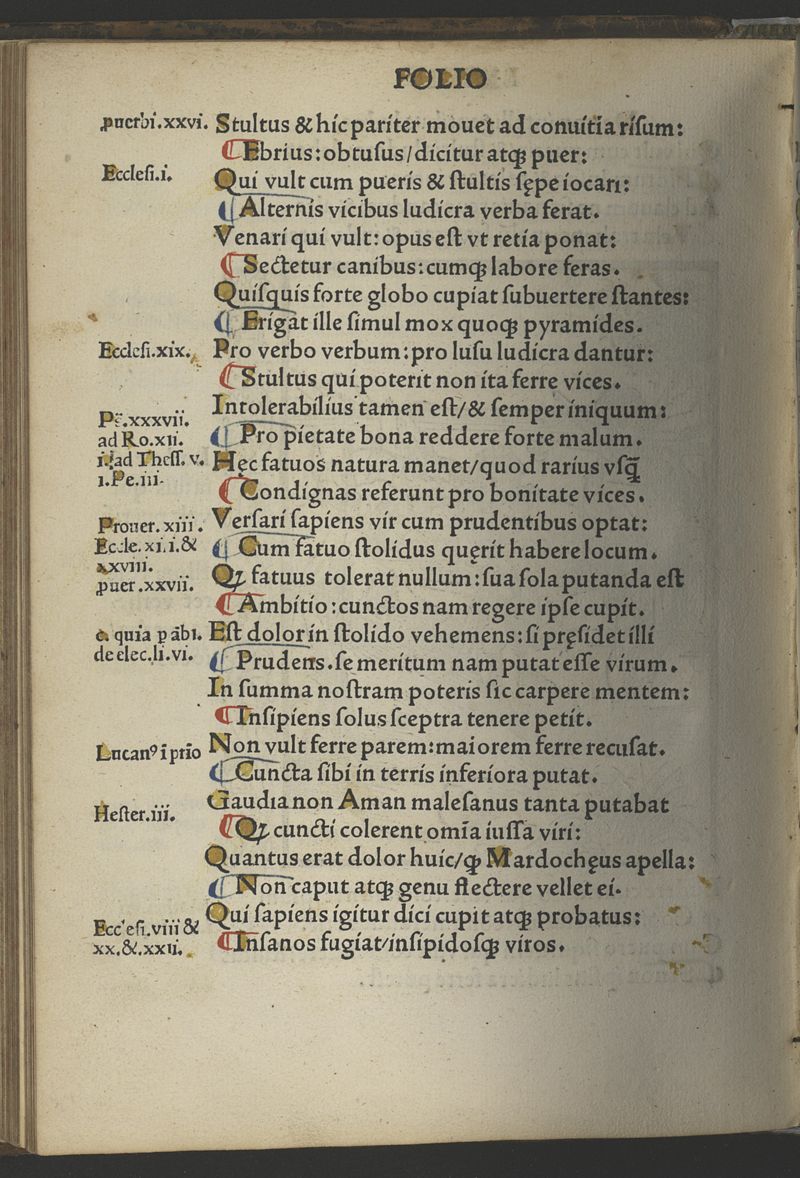 FOLIO
ꝓuerbi.xxvi. Stultus & hic pariter mouet ad conuitia risum:
¶ Ebrius: obtusus/dicitur atqꝫ puer:
Ecclesi.i. Qui vult cum pueris & stultis sępe iocari:
¶ Alternis vicibus ludicra verba ferat.
Venari qui vult: opus est vt retia ponat:
¶ Sectetur canibus: cumqꝫ labore feras.
Quisquis forte globo cupiat subuertere stantes:
¶ Erigat ille simul mox quoqꝫ pyramides.
Ecclesi.xix. Pro verbo verbum: pro lusu ludicra dantur:
¶ Stultus qui poterit non ita ferre vices.
Intolerabilius tamen est/& semper iniquum:
Ps.xxxvii.
ad Ro.xii. ¶ Pro pietate bona reddere forte malum.
i. ad Thess. v. Hęc fatuos natura manet/quod rarius vsqꝫ
i.Pe.iii.
¶ Condignas referunt pro bonitate vices.
Prouer. xiii. Versari sapiens vir cum prudentibus optat:
Eccle. xiii.& ¶ Cum fatuo stolidus quęrit habere locum.
xxviii.
ꝓuer.xxvii. Qꝫ fatuus tolerat nullum: sua sola putanda est
¶ Ambitio: cunctos nam regere ipse cupit.
c. quia p ābi. Est dolor in stolido vehemens: si pręsidet illi
de elec.li.vi. ¶ Prudens. se meritum nam putat esse virum.
In summa nostram poteris sic carpere mentem:
¶ Insipiens solus sceptra tenere petit.
Lucanꝰ ī prīo Non vult ferre parem: maiorem ferre recusat.
¶ Cuncta sibi in terris inferiora putat.
Hester.iii. Gaudia non Aman malesanus tanta putabat
¶ Qꝫ cuncti colerent omīa iussa viri:
Quantus erat dolor huic/qꝫ Mardochęus apella:
¶ Non caput atqꝫ genu flectere vellet ei.
Ecclesi.viii & Qui sapiens igitur dici cupit atqꝫ probatus:
xx.&.xxii. ¶ Insanos fugiat/insipidosqꝫ viros.